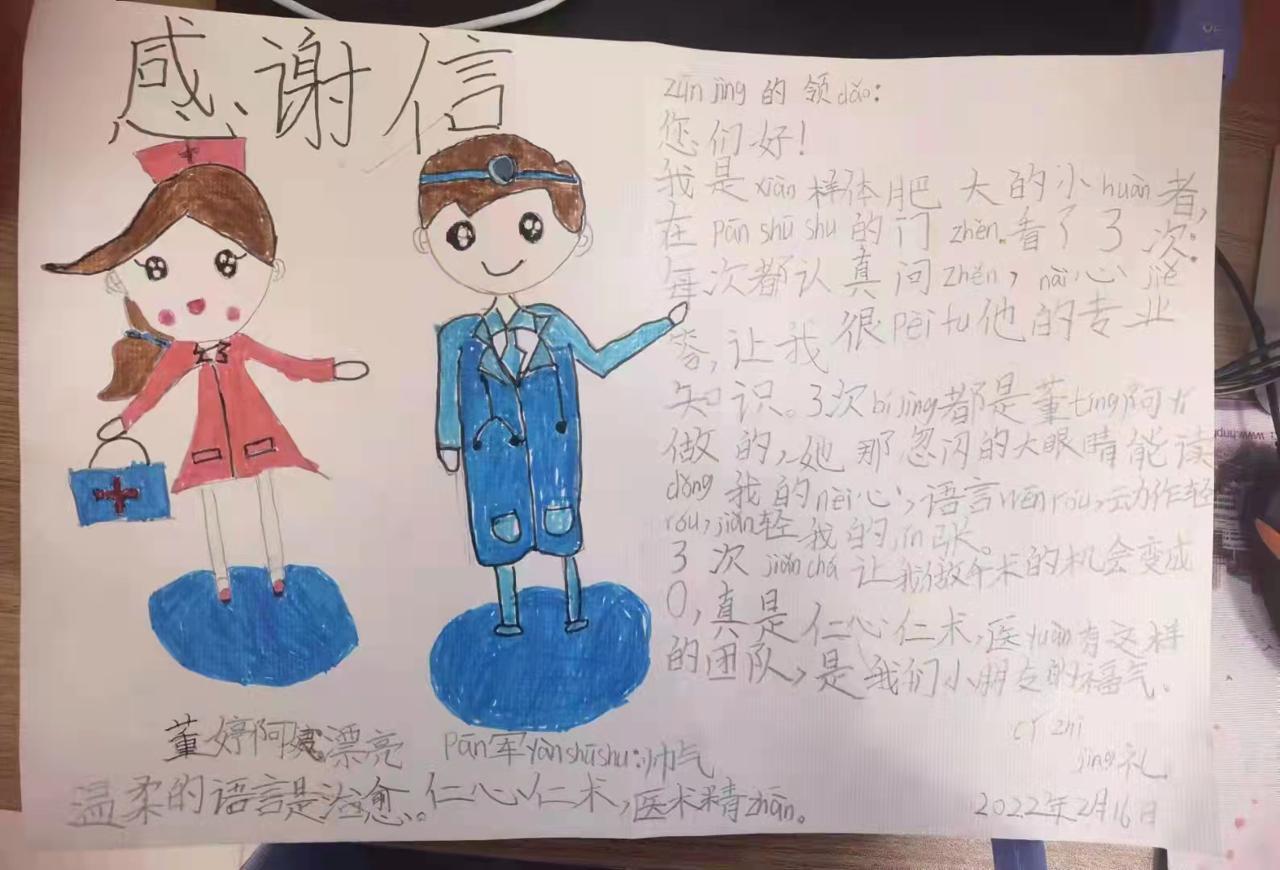 感谢信
zūn jìng 的 领 dǎo:
您们好!
我是 xiàn 样体肥 大的小 huàn 者,
在 pān shū shu 的门 zhěn.看了3次.
每次都认真问 zhěn, nài心 jiě
答,让我很 pèi fu 他的专业
知识。3次 bí jìng 都是董 tíng 阿 yí
做的,她那忽闪的大眼睛能读
dǒng 我的 nèi 心,语言 wēn róu,动作轻
róu, jiǎn轻我的 jǐn 张。
3次 jiǎn chá 让我做手术的机会变成
0,真是仁心仁术,医 yuàn 有这样
的团队,是我们小朋友的福气。
cǐ zhì
jìng 礼
2022年2月16日
董婷阿姨漂亮
Pān 军 yàn shū shu:帅气
温柔的语言是治愈。仁心仁术,医术精 zhàn。